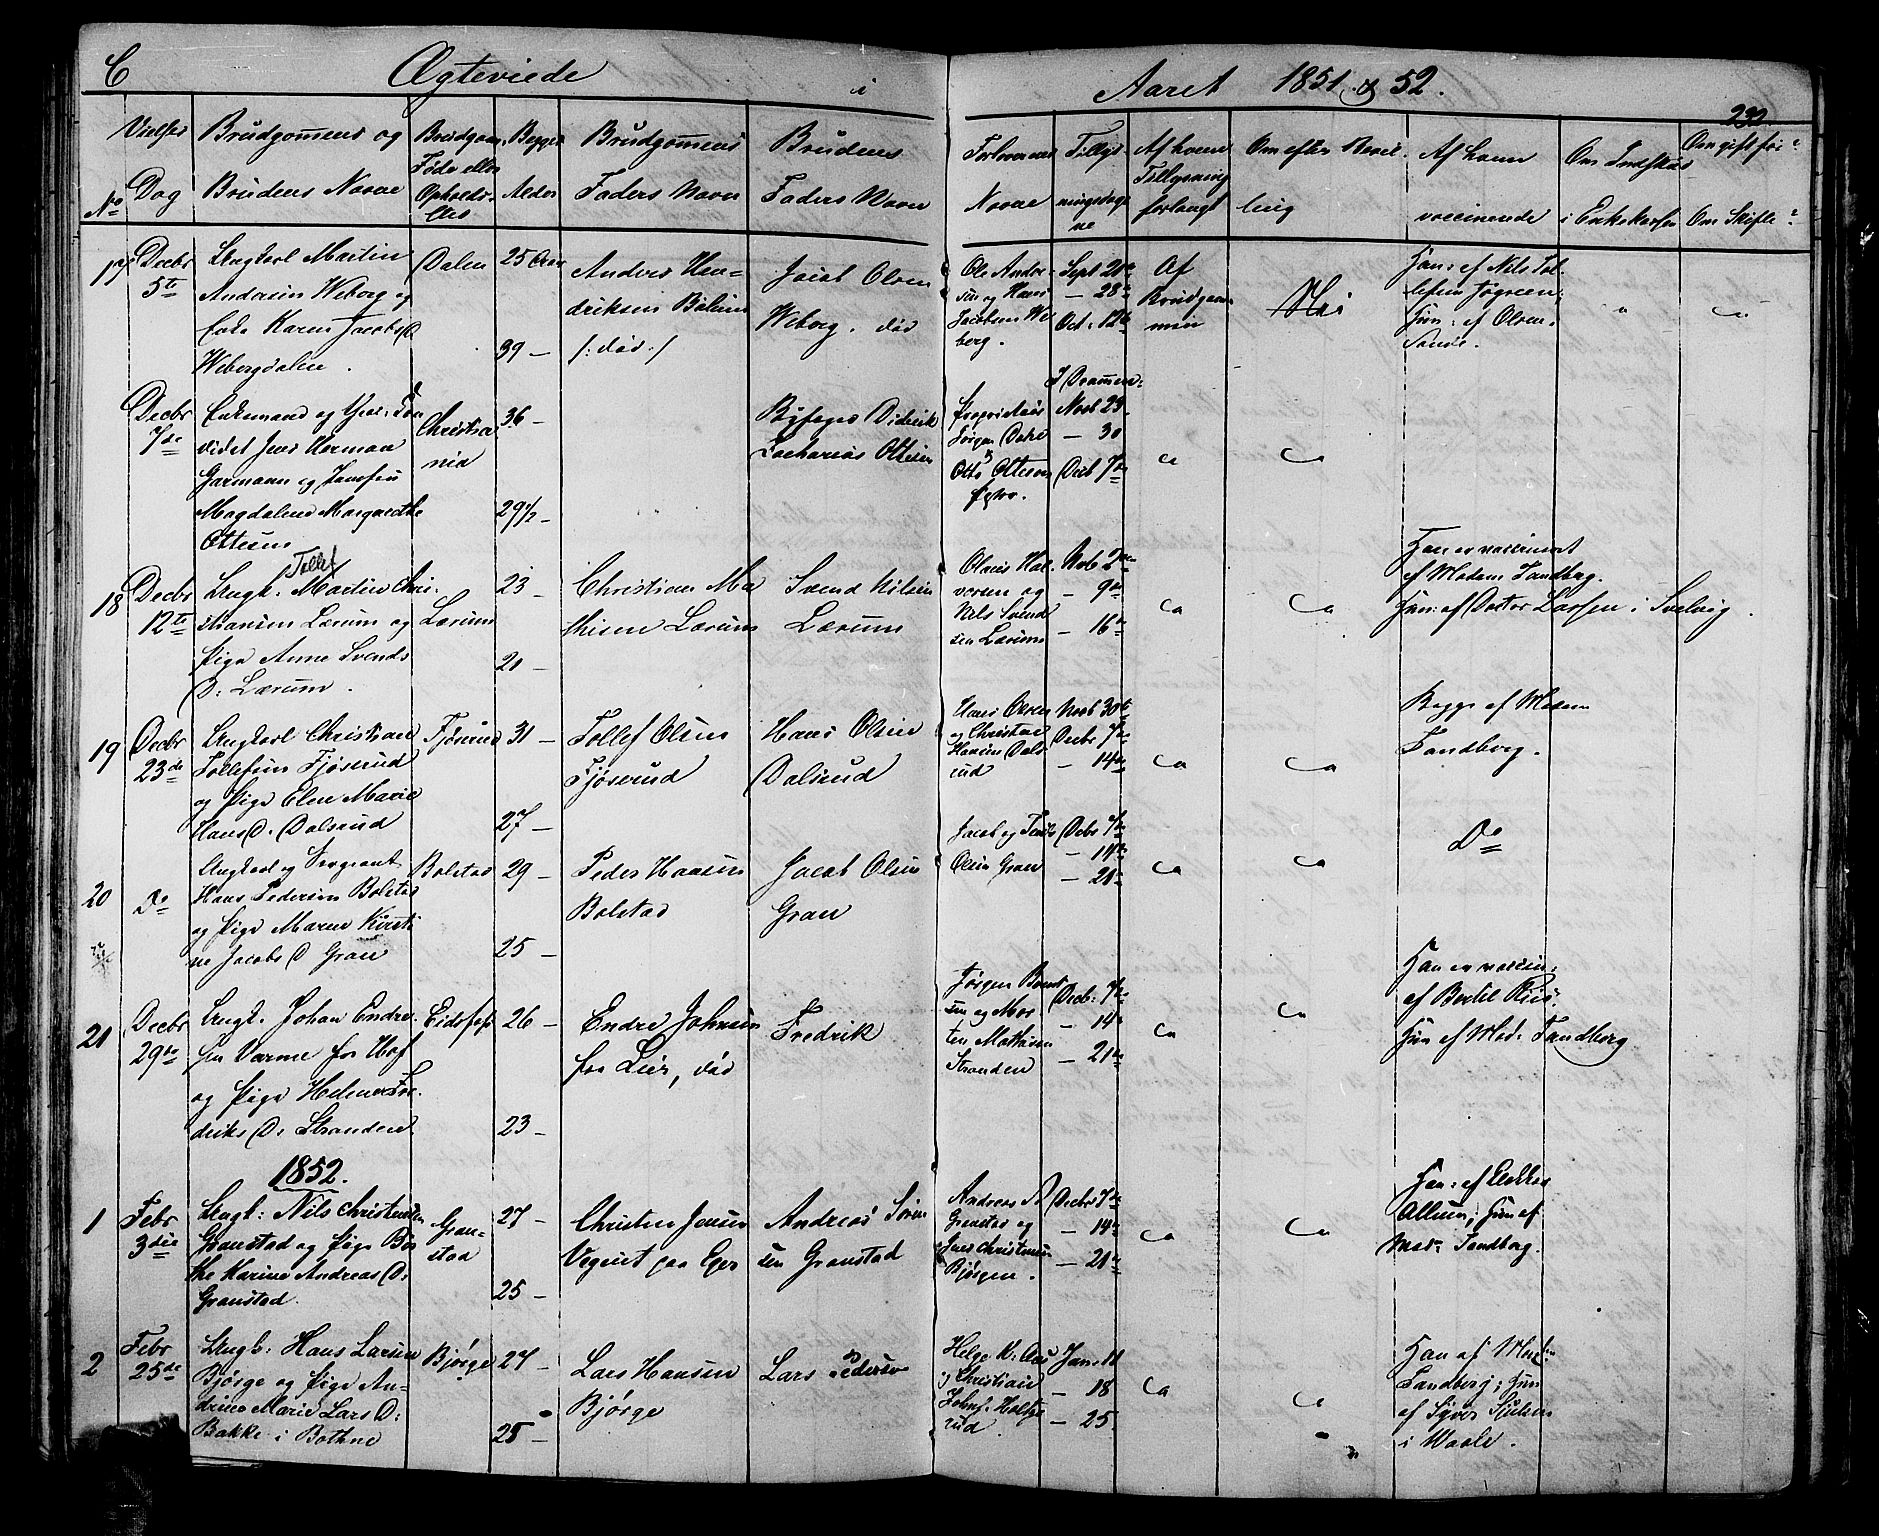 C Ægteviede i Aaret 1851 & 52.
232
No
Vielses Dag
Brudgommens og Brudens Navne
Brudgom. Føde eller Opholds-
Begges Alder
Brudgommens Faders Navn
Brudens Faders Navn
Forlovernes Navne
Tillys-
Af hvem Tillysning forlangt
Om efter
Af hvem vaccinerede
Om Indskud i Enkekassen
Om Skifte
17
Decbr
5te
Ungkarl Martin
Andersen Weborg og
Enke Karen Jacobs D.
Webergdalen.
Dalen
25 Aar
39 —
Anders Hen-
driksen
/: død :/
Jacob Olsen
Weborg. død
Ole Ander-
sen og Hans
Jacobsen We
berg.
Sept 21de
— 28de
Oct: 12te
Af
Brudgom-
men
Nei
Han: af Nils Tol-
lefsen
Hun: af Olsen,
Sande.
Decbr
7de
Enkemand og
Jens Herman
Garmann og Jomfru
Magdalene Margrethe
Ottesen
Christia
nia
36 —
29½ —
Byfoged Diderik
Zacharias Ottesen
Proprietair
Jørgen
Otto Ottesen
I Drammen:
Novb 23
— 30
Decb 7de
18
Decbr
12te
Tollef
Ungk: Martin Chri-
stiansen Lærum og
Pige Anne Svends
D: Lærum.
Lærum
23 —
21 —
Christian Ma
thisen Lærum
Svend Nilsen
Lærum
Olaus Hal-
vorsen og
Nils Svend
sen Lærum
Novb 2den
— 9de
— 16de
Han er vaccineret
af Madam Sandberg.
Hun: af Doctor Larsen i Svelvig.
19
Decbr
23de
Ungkarl Christian
Tollefsen Fjøserud
og Pige Elen Marie
Hans D. Dalsrud
Fjøserud
31 —
27 —
Tollef Olsen
Fjøserud
Hans Olsen
Dalsrud
Hans Olsen
og Christian
Hansen Dals
rud
Novb 30te
Decbr 7de
— 14de
Begge af Madam
Sandberg.
20
Do
Ungkarl og Sergeant
Hans Pedersen Bolstad
og Pige Maren Kirsti
ne Jacobs D Gran
Bolstad
29 —
25 —
Peder Hansen
Bolstad
Jacob Olsen
Gran
Jacob og
Olsen Gran
Decbr 7de
— 14de
— 21de
Do
21
Decbr
29de
Ungk. Johan Endre-
sen Varme fra Hof
og Pige Helene Fre-
driks D: Stranden.
Eidsfos
26 —
23 —
Endre Johnsen
fra Lier, død
Fredrik
Jørgen Bernt
sen og Mor-
ten Mathisen
Stranden
Decb: 7de
— 14de
— 21de
Han er vaccin:
af Bertil Riis.
Hun af Mad: Sandberg
1852.
1
Febr
3die
Ungk: Nils Christensen
Granstad og Pige Ber
the Karine Andreas D:
Granstad.
Gran-
stad
27 —
25 —
Christen Jensen
paa Eger
Andreas Søren
sen Granstad
Andreas S
Granstad og
Jens Christensen
Bjørgen.
Decbr 7de
— 14de
— 21de
Han: af
Allum; Hun af
Madm Sandberg.
2
Febr
25de
Ungk: Hans Larsen
Bjørge og Pige An-
drine Marie Lars D:
Bakke i Bothne
Bjørge
27 —
25 —
Lars Hansen
Bjørge
Lars Pedersen
Helge K: Aas
og Christian
Johns. Holtge
rud.
Jan. 11
— 18
— 25.
Han af Mad:
Sandberg; Hun
af Syver
i Waale.